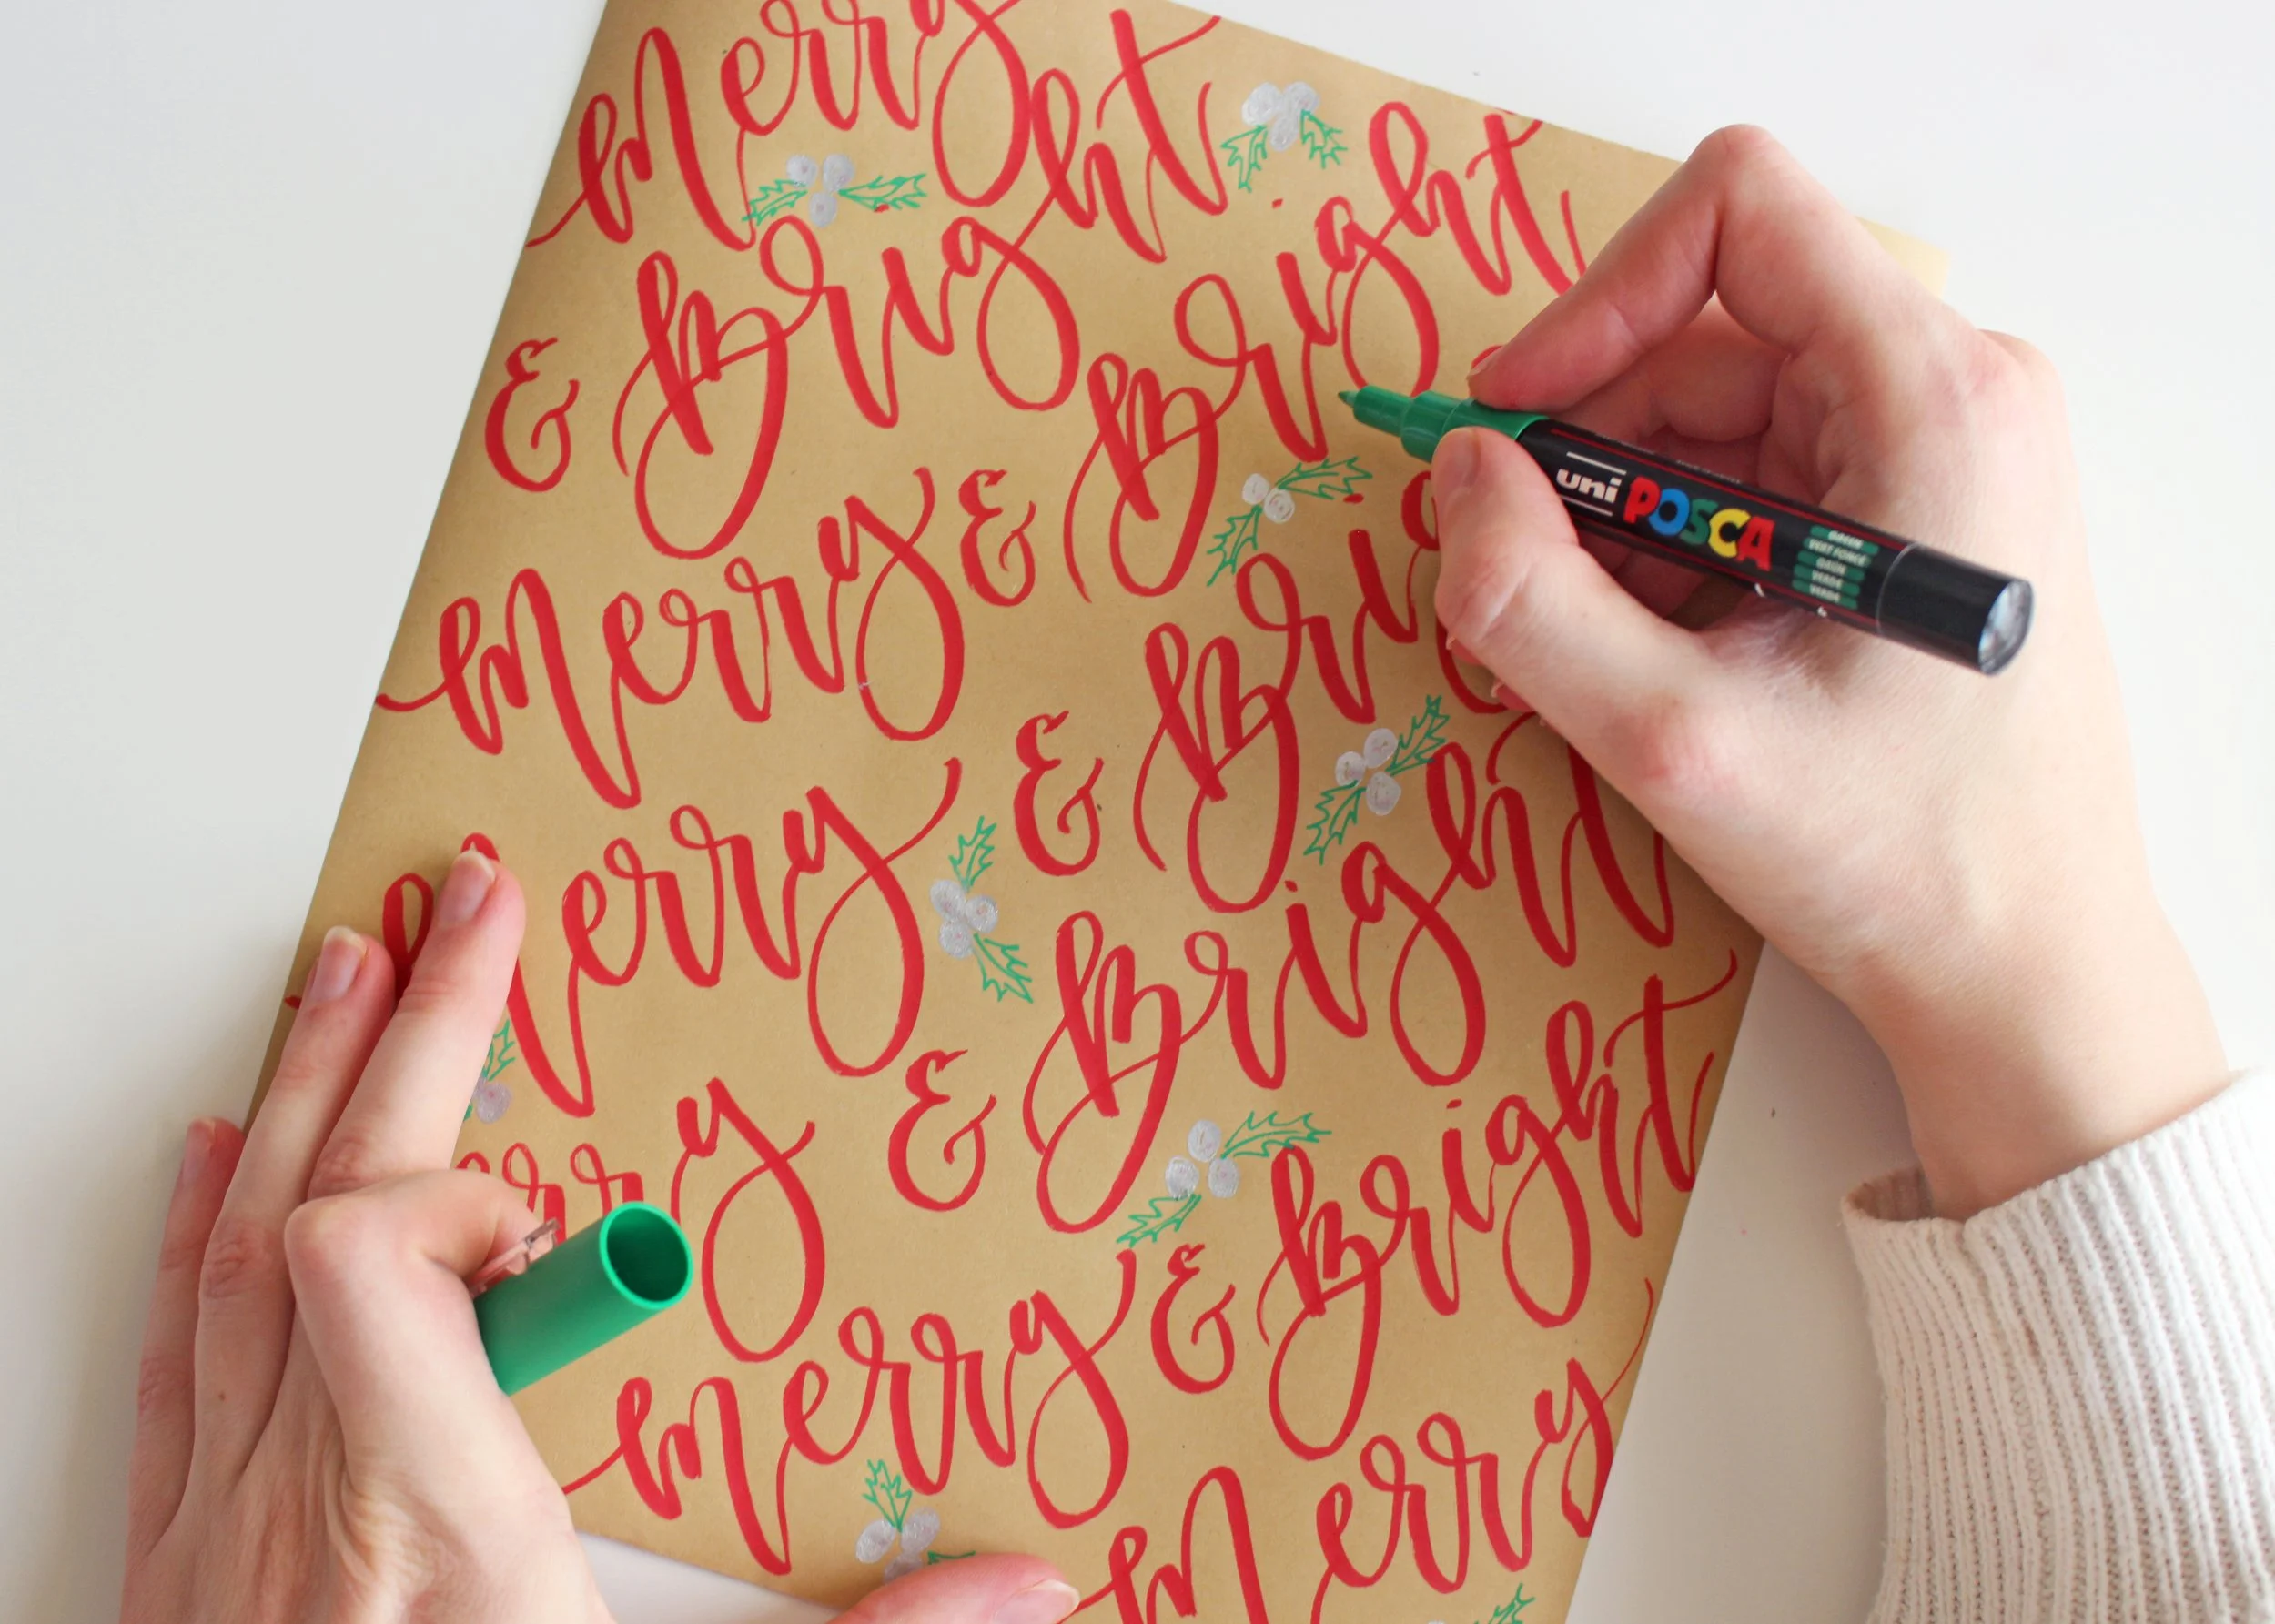 Merry
& Bright
Merry & Bright
Merry & Brig
erry & Bright
erry & Bright
Merry & Bright
Merry
uni POSCA
GREEN
VERT FONCÉ
GRÜN
VERDE
VERDE